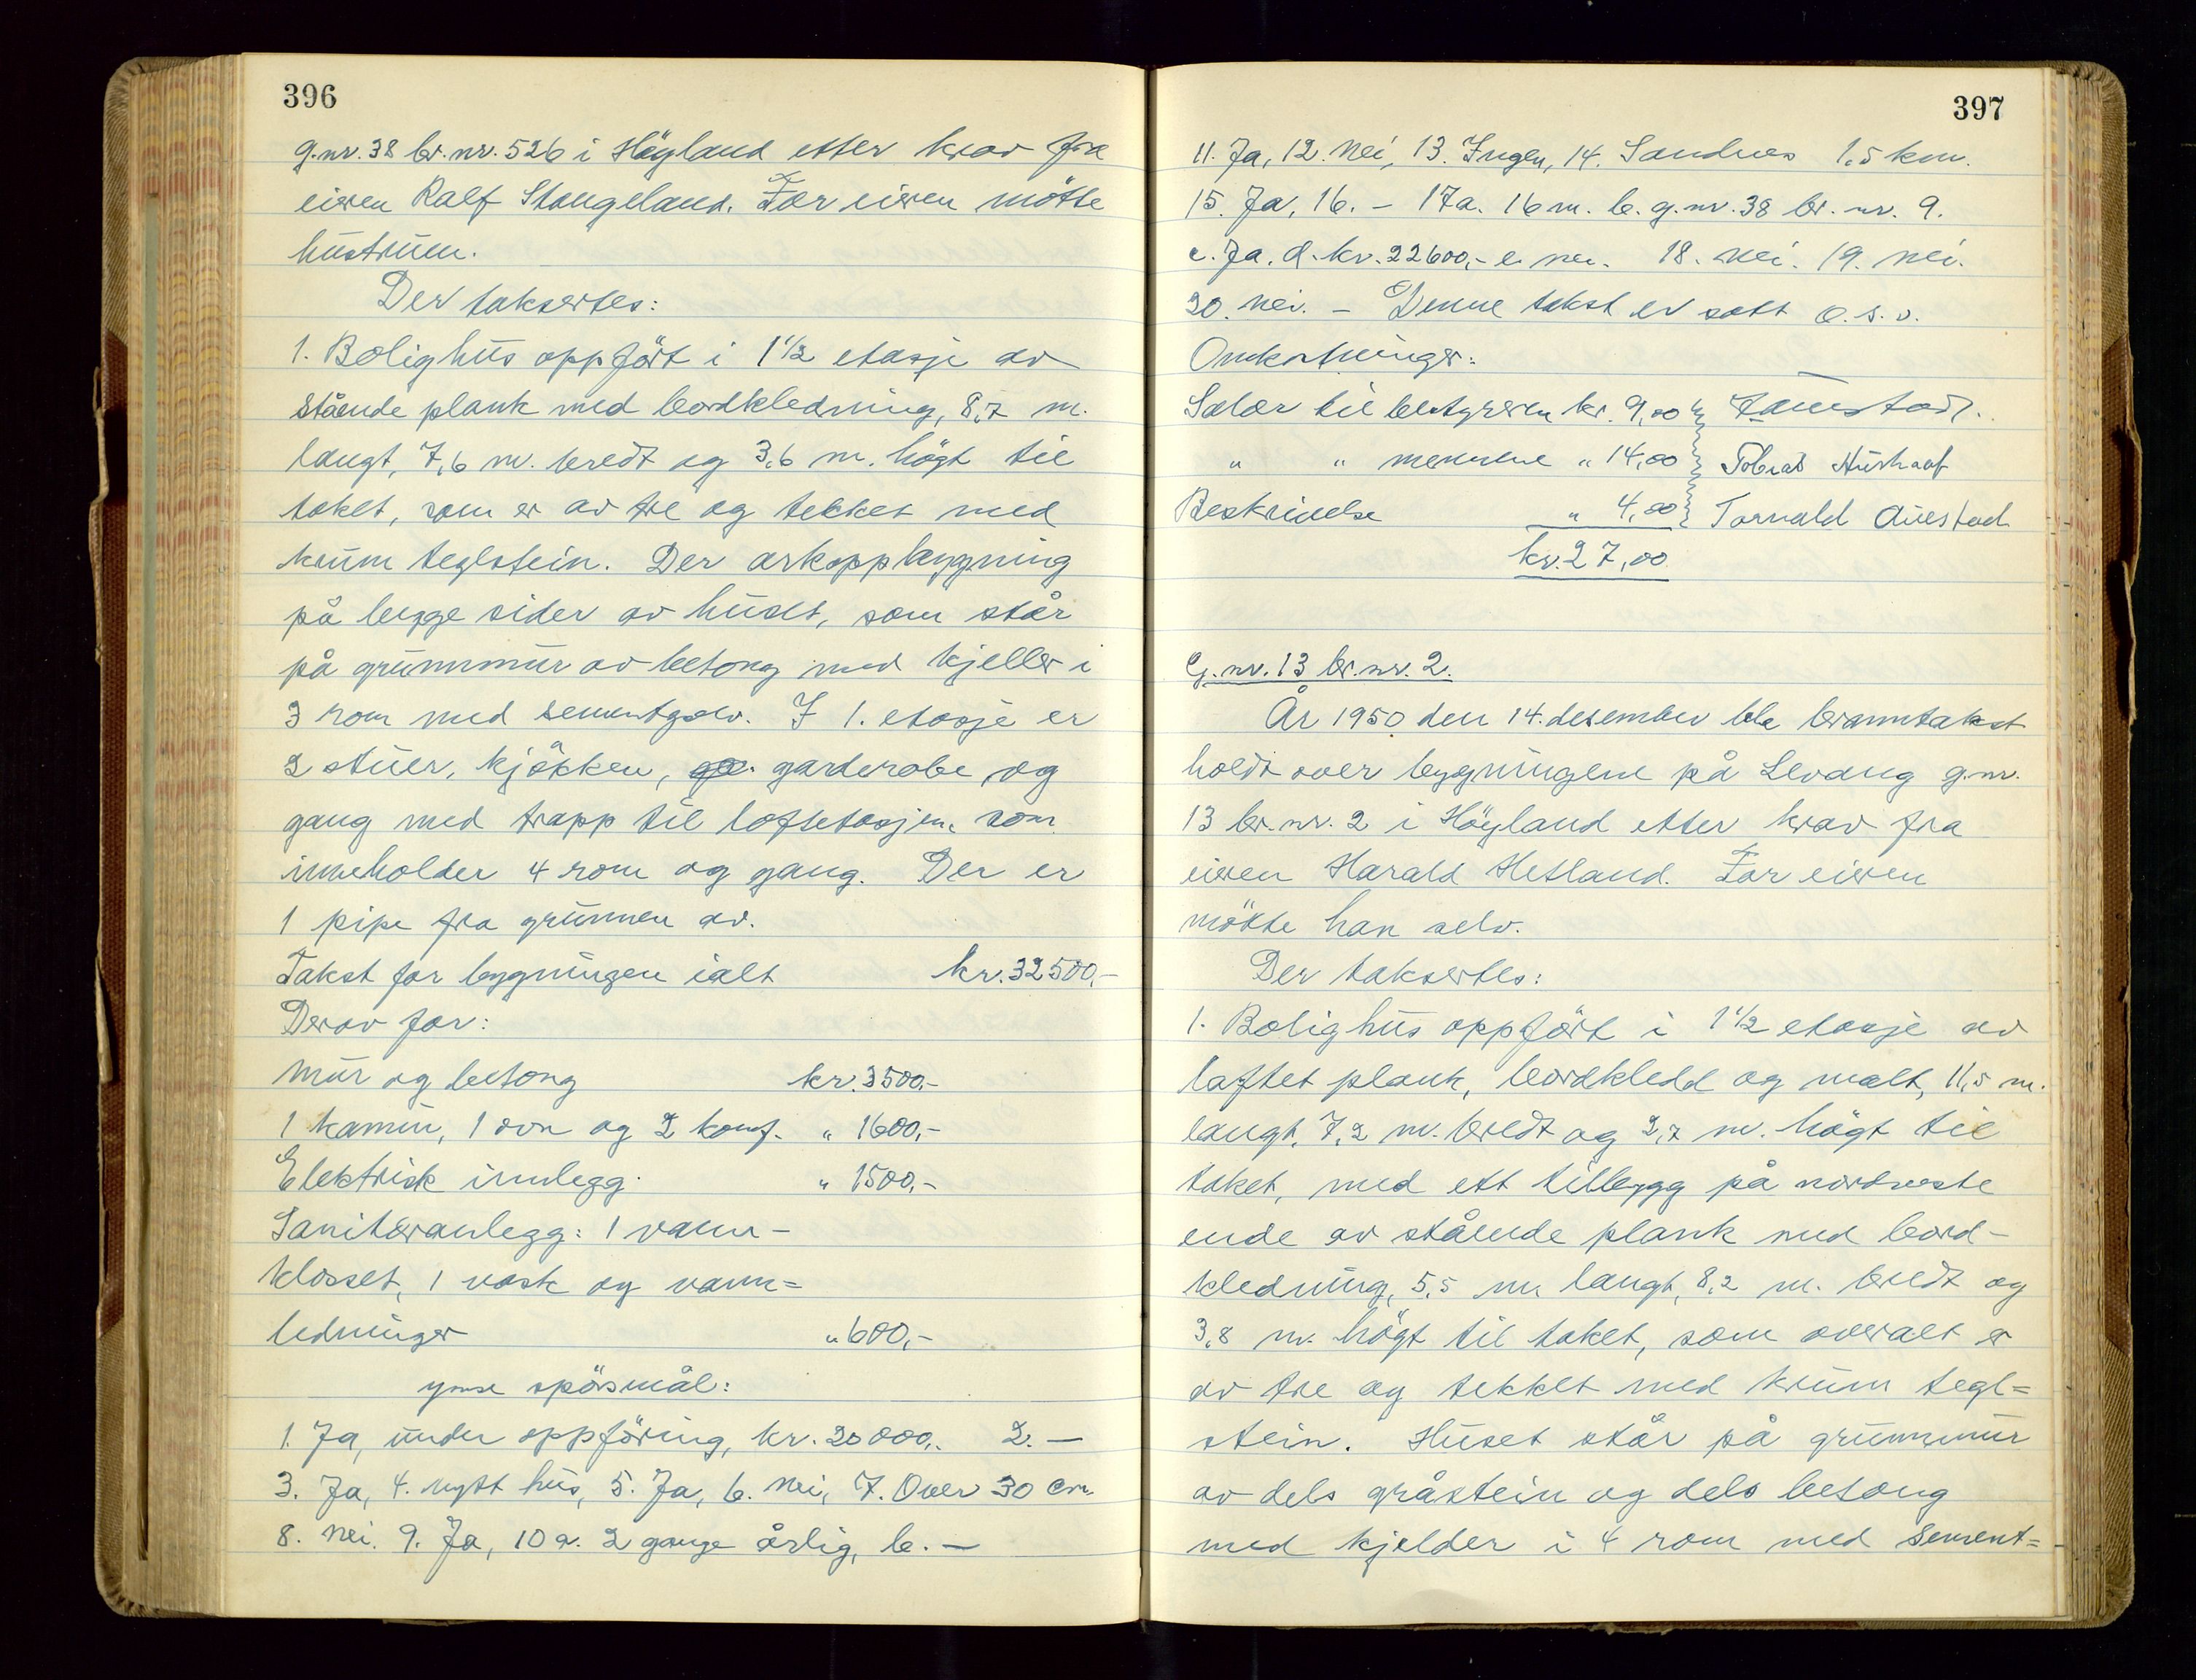 396
g.nr. 38 br.nr. 526 i Höyland etter krav fra
eieren Ralf Stangeland. For eieren mötte
hustruen.
Der taksertes:
1. Bolighus oppfört i 1 1/2 etasje av
stående plank med bordkledning, 8,7 m.
langt, 7,6 m. bredt og 3,6 m. högt til
taket, som er av tre og tekket med
krum teglstein. Der arkoppbygning
på begge sider av huset, som står
på grunnmur av betong med kjeller i
3 rom med sementgolv. I 1. etasje er
2 stuer, kjökken, garderobe og
gang med trapp til loftetasjen. som
inneholder 4 rom og gang. Der er
1 pipe fra grunnen av.
Takst for bygningen ialt kr. 32500,-
Derav for:
Mur og betong kr. 3500,-
1 kamin, 1 ovn og 2 komf. " 1600,-
Elektrisk innlegg. " 1500,-
Sanitæranlegg: 1 vann-
klosset, 1 vask og vann=
ledninger " 600,-
ymse spörsmål:
1. Ja, under oppföring, kr. 20000,. 2. —
3. Ja, 4. nytt hus, 5. Ja, 6. Nei, 7. Over 30 cm.
8. Nei. 9. Ja, 10 a. 2 gange årlig, b. —
397
11. Ja, 12. Nei, 13. Ingen, 14. Sandnes 1,5 km.
15. Ja, 16. - 17a. 16 m. b. g.nr. 38 br. nr. 9.
c. Ja. d. kr. 22600,- e. nei. 18. nei. 19. nei.
20. nei. - Denne takst er satt o.s.v.
Omkostninger:
Salær til bestyreren kr. 9,00
" " mennene " 14,00 Tobias Husbaaf
Beskrivelse " 4,00 Torvald Auestad
kr. 27,00
G.nr. 13 br.nr. 2.
År 1950 den 14. desember ble branntakst
holdt over bygningene på Levang g.nr.
13 br.nr. 2 i Höyland etter krav fra
eieren Harald Hetland. For eieren
mötte han selv.
Der taksertes:
1. Bolighus oppfört i 1 1/2 etasje av
laftet plank, bordkledd og malt, 11,5 m.
langt, 7,2 m. bredt og 2,7 m. högt til
taket, med ett tilbygg på nordveste
ende av stående plank med bord-
kledning, 5,5 m. langt, 8,2 m. bredt og
3,8 m. högt til taket, som overalt er
av tre og tekket med krum tegl=
stein. Huset står på grunnmur
av dels gråstein og dels betong
med kjelder i 4 rom med sement=